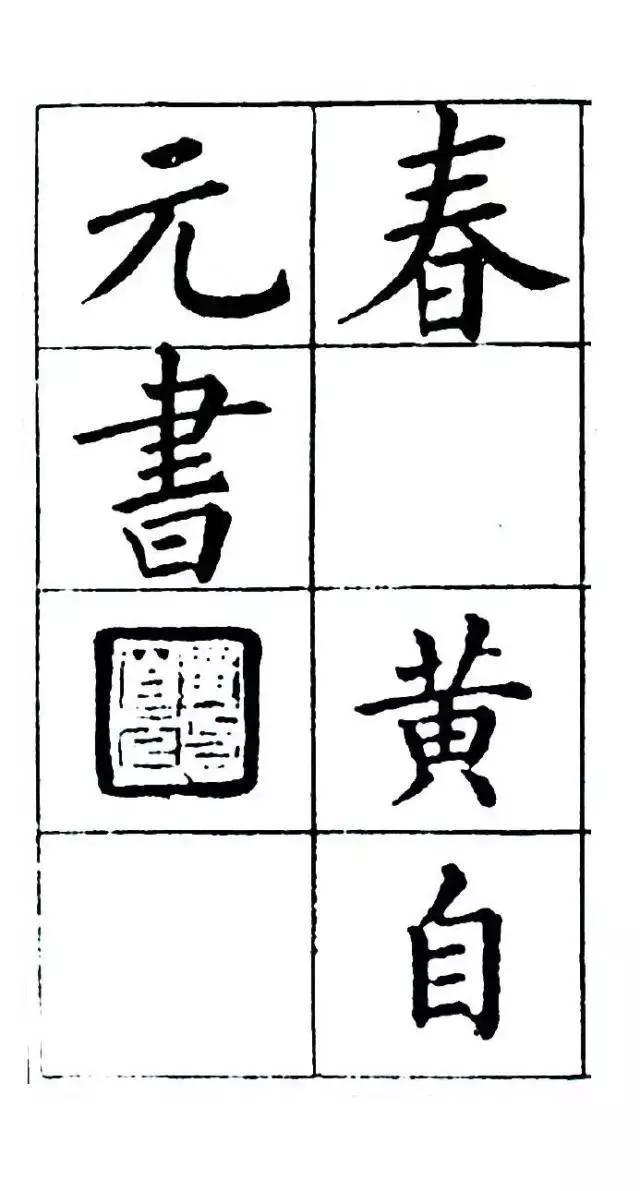 春 黄自
元書